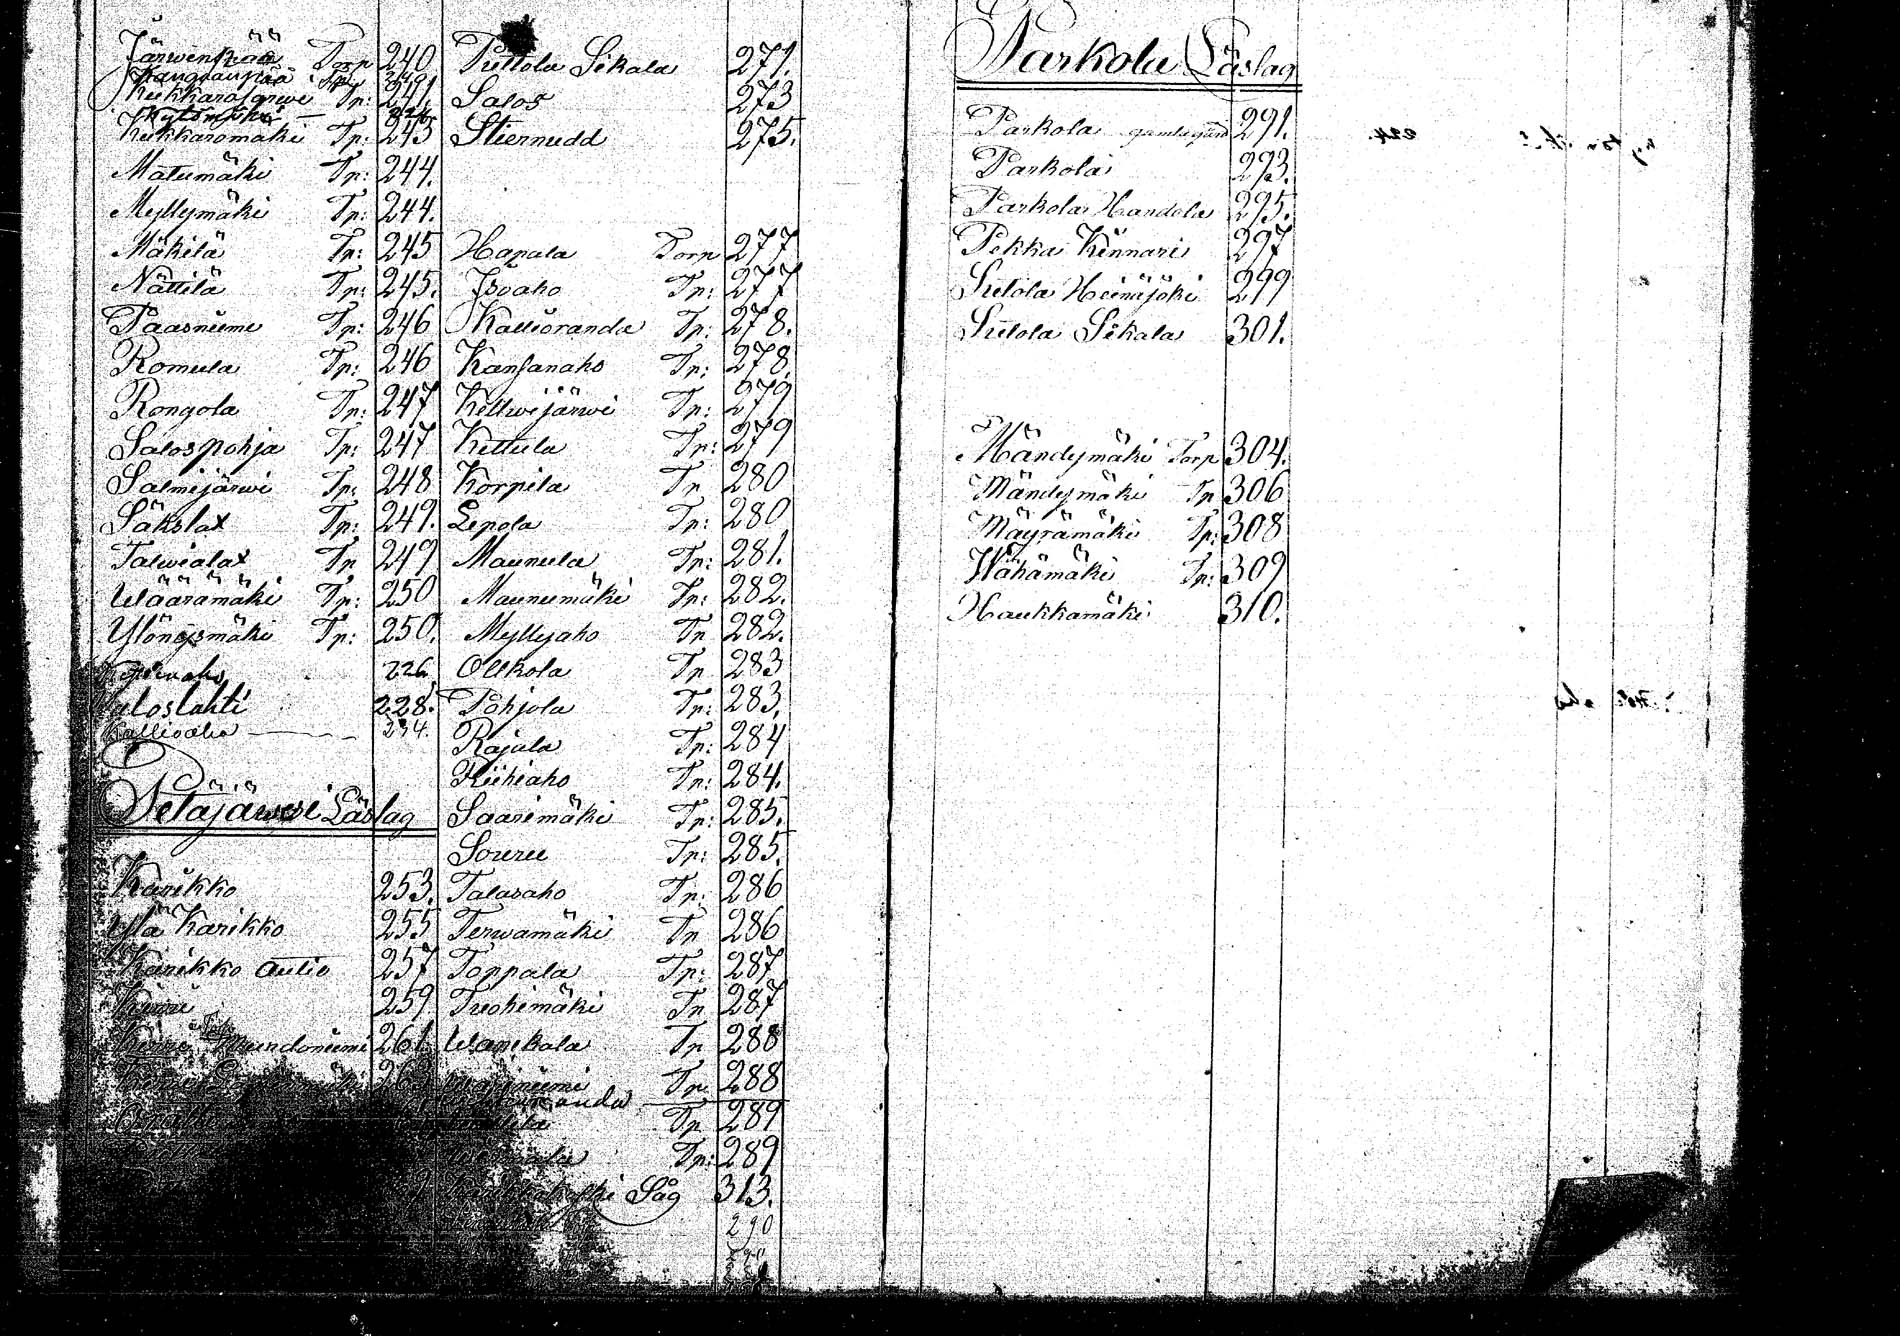 Järwenpää Torp 240
Kangaanpää Tp:
Kukkarojärwi Tp: 241.
Kytömäki — 226
Kukkaromäki Tp: 243
Matumäki Tp: 244.
Myllymäki Tp: 244.
Mäkilä Tp: 245
Nättilä Tp: 245.
Paasniemi Tp: 246
Romula Tp: 246
Rongola Tp: 247
Salospohja Tp: 247
Salmijärwi Tp: 248
Säkslax Tp: 249.
Talwialax Tp 249
Wäärämäki Tp: 250
Ylönesmäki Tp: 250.
226
Uloslahti 228.
Kallioaho 234.
Petäjäwesi Läslag
Karikko 253.
Ylä Karikko 255
Karikko Autio 257
Kirri 259
Mundoniemi 261
Puttola Sikala 271.
Salos 273
Stiernudd 275.
Hapala Torp 277
Isoaho Tp: 277
Kallioranda Tp: 278.
Kansanaho Tp: 278.
Keltwijärwi Tp: 279
Kettula Tp: 279
Korpila Tp 280
Lepola Tp: 280
Maunula Tp: 281.
Maunumäki Tp: 282.
Myllyaho Tp 282.
Ollkola Tp 283
Pohjola Tp: 283.
Rajala Tp: 284
Riihiaho Tp: 284.
Saarimäki Tp: 285.
Souru Tp: 285.
Talasaho Tp: 286
Terwamäki Tp 286
Toppala Tp: 287
Tuohimäki Tp 287
Wanikala Tp 288
Tp 288
Tp 289
Tp: 289
Såg 313.
290
Parkola Läslag
Parkola gamlegård 291.
Parkola 293.
Parkola Handola 295.
Pekka Kinnari 297
Sutola Heinäjoki 299
Sutola Sikala 301.
Mändymäki Torp 304.
Mändymäki Tp 306
Mäyrämäki Tp: 308
Wähämäki Tp: 309
Haukkamäki 310.